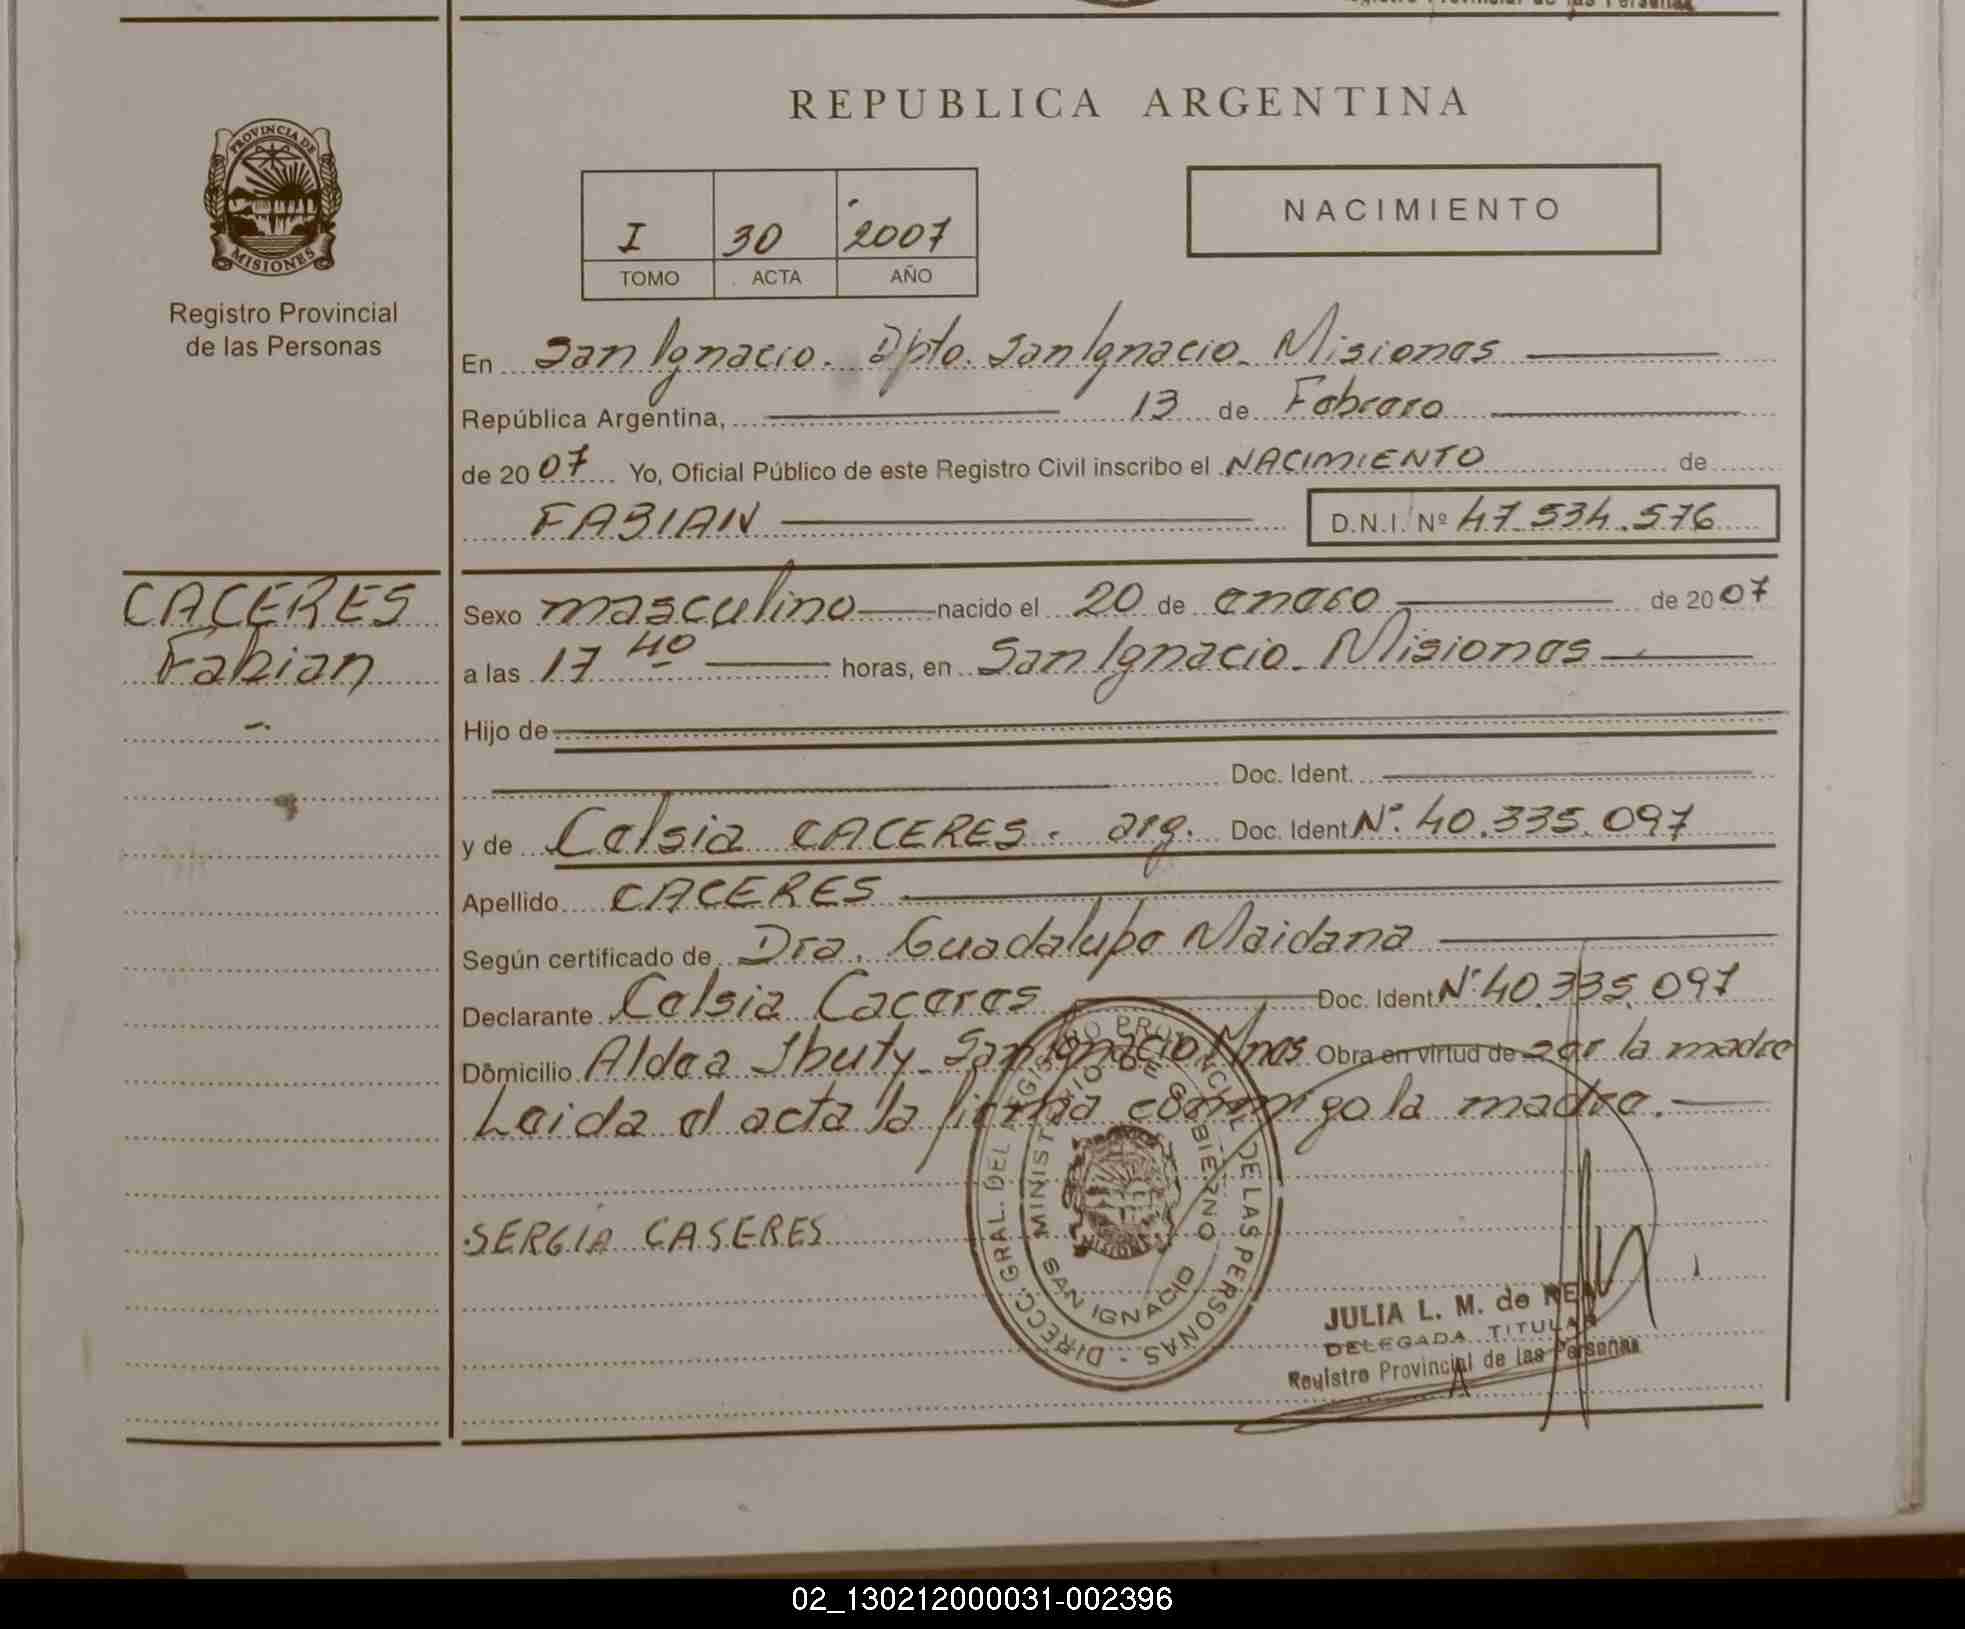 Registro Provincial de las Personas
REPUBLICA ARGENTINA
PROVINCIA DE
MISIONES
Registro Provincial
de las Personas
I 30 2007
TOMO ACTA AÑO
NACIMIENTO
En San Ignacio. Dpto. San Ignacio. Misiones
República Argentina, 13 de Febrero
de 2007 Yo, Oficial Público de este Registro Civil inscribo el NACIMIENTO de
FABIAN D.N.I. Nº 47.534.576
CACERES
Fabian
Sexo masculino nacido el 20 de enero de 2007
a las 17 40 horas, en San Ignacio. Misiones
Hijo de
Doc. Ident.
y de Celsia CACERES. arg. Doc. Ident Nº: 40.335.097
Apellido CACERES
Según certificado de Dra. Guadalupe Maidana
Declarante Celsia Caceres Doc. Ident Nº 40.335.097
Domicilio Aldea Ibuty. San Ignacio Mnes Obra en virtud de ser la madre
Leida el acta la firma conmigo la madre.
SERGIA CASERES
DIRECC. GRAL. DEL REGISTRO PROVINCIAL DE LAS PERSONAS
MINISTERIO DE GOBIERNO
MISIONES
SAN IGNACIO
JULIA L. M. de
DELEGADA TITULAR
Registro Provincial de las Personas
02_130212000031-002396